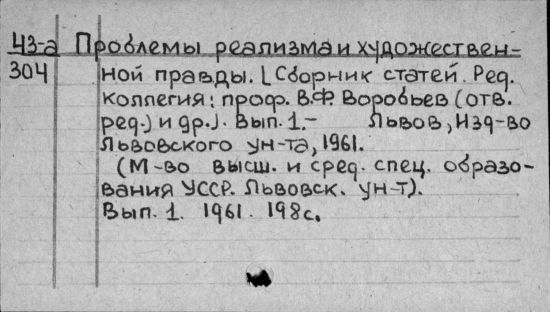 43-а Проблемы реализма и художествен-
304 ной правды. [Сборник статей. Ред.
коллегия: проф. В.Ф. Воробьев (отв.
ред.) и др.]. Вып. 1.- Львов, Изд-во
Львовского ун-та, 1961.
(М-во высш. и сред. спец. образо-
вания УССР. Львовск. ун-т).
Вып. 1. 1961. 198с.